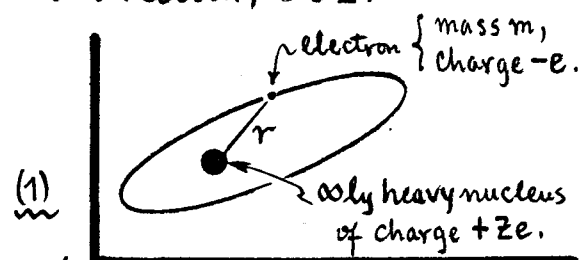 electron { mass m,
charge -e.
r
(1)
∞ly heavy nucleus
of charge +Ze.